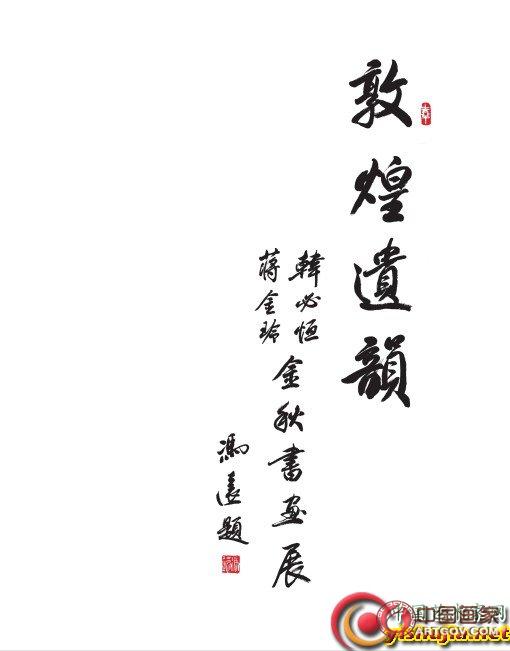 敦煌遺韻
韓必恒
蔣金玲
金秋書画展
馮遠題
中国画家
ARTGOV.COM